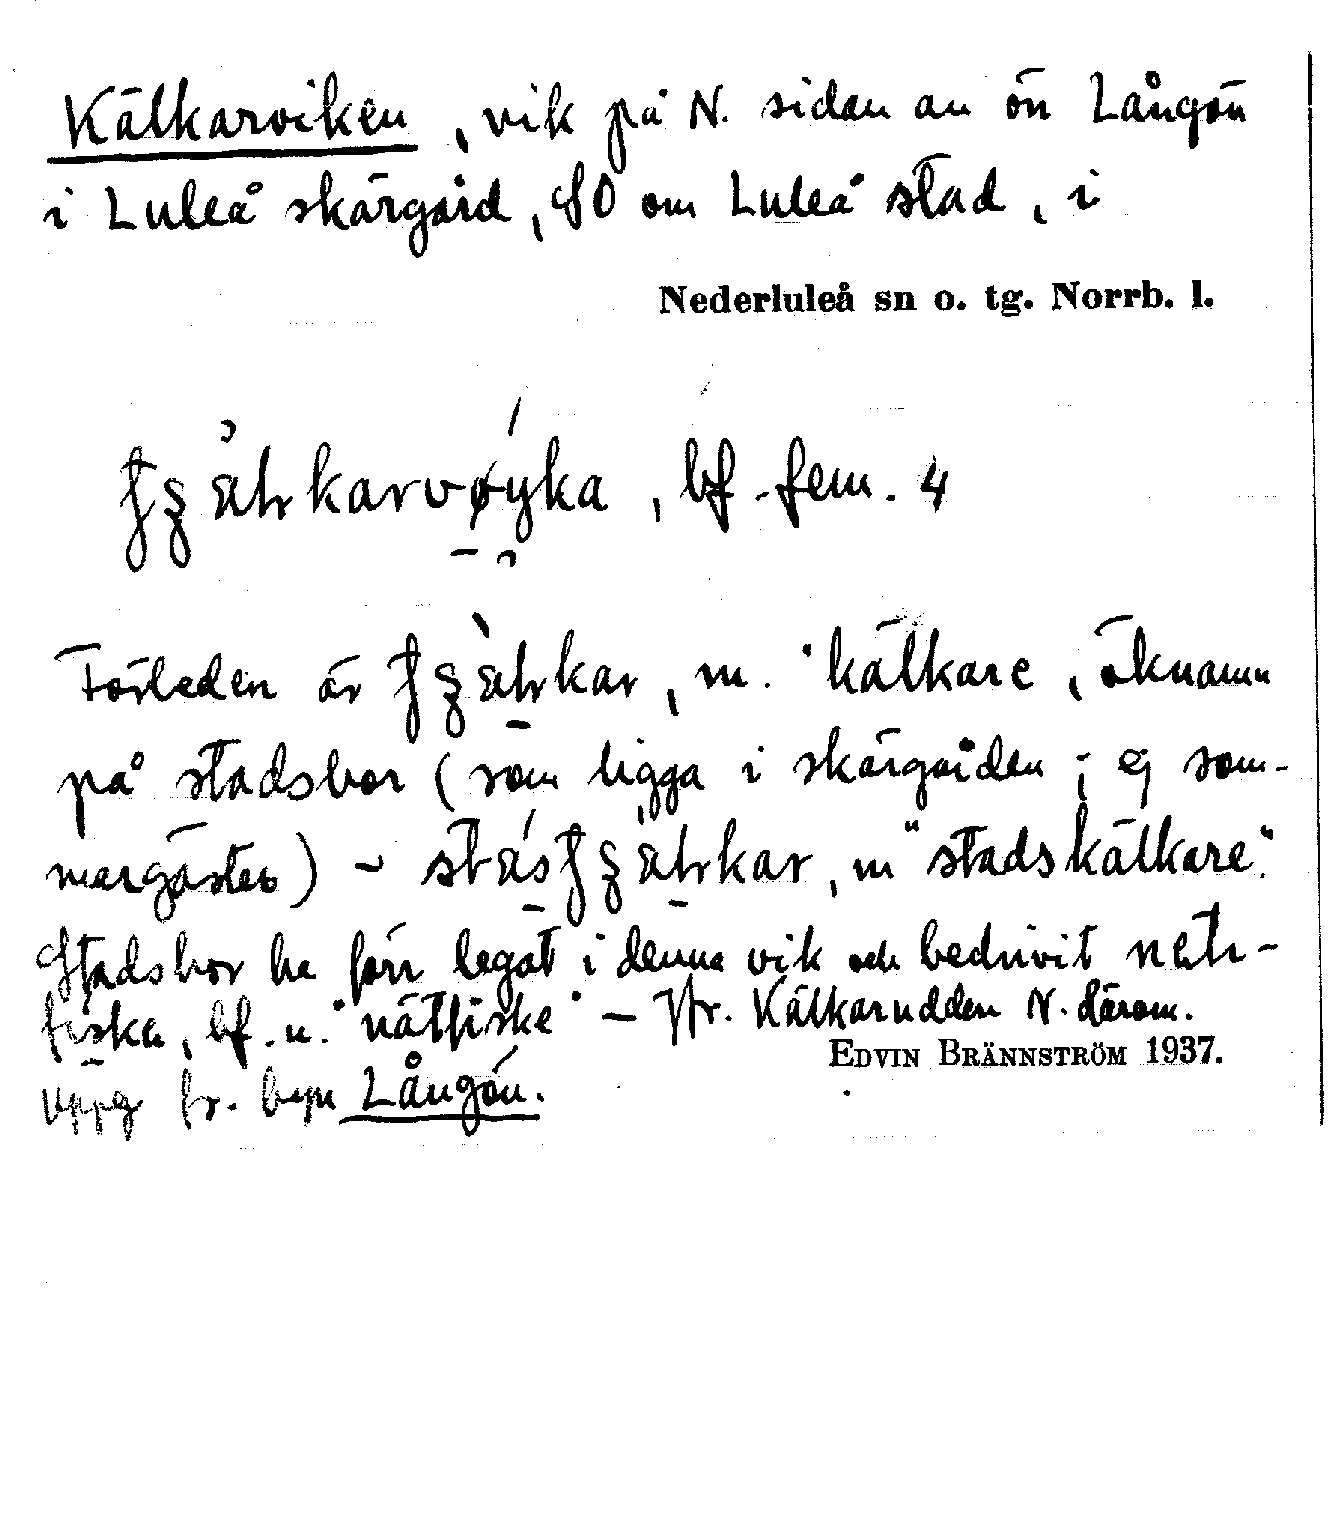 Kälkarviken, vik på N. sidan av ön Långön
i Luleå skärgård, SO om Luleå stad, i
Nederluleå sn o. tg. Norrb. l.
, bf. fem. 4
Förleden är , m. "kälkare, öknamn
på stadsbor (som ligga i skärgården; ej som-
margäster) - , m "stadskälkare".
Stadsbor ha förr legat i denna vik och bedrivit
, bf. n. "nätfiske" — Jfr. Kälkarudden N. därom.
EDVIN BRÄNNSTRÖM 1937.
Uppg fr. byn Långön.